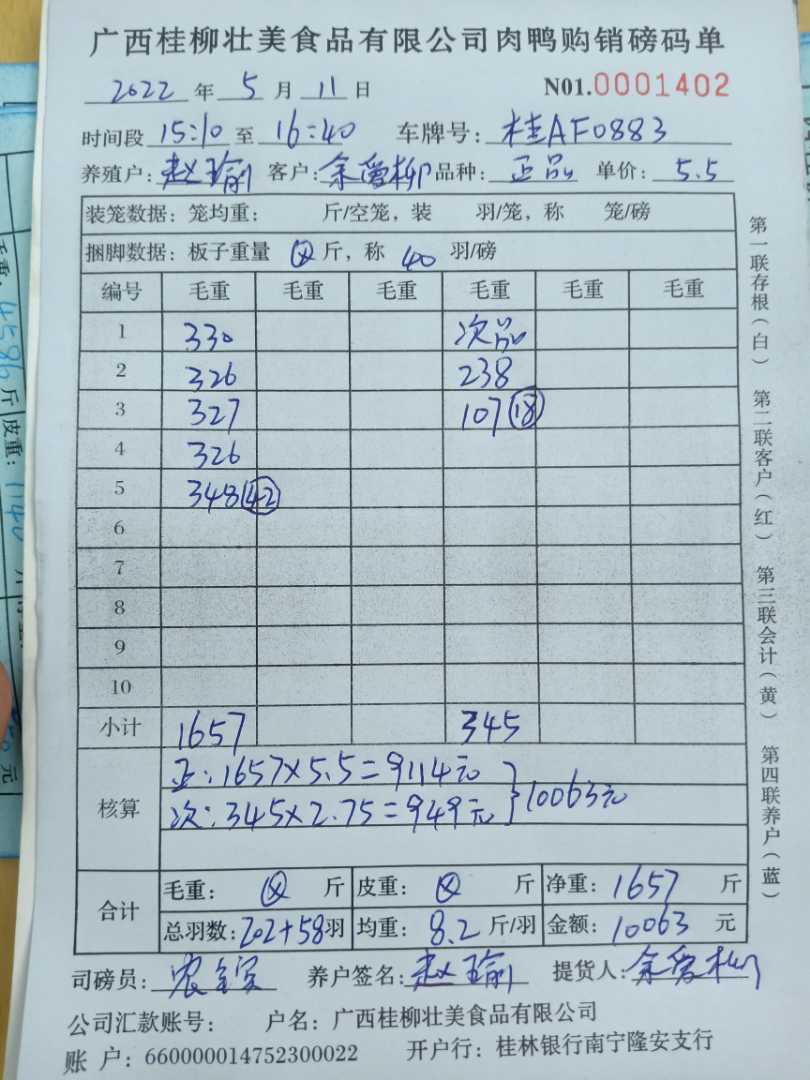 广西桂柳壮美食品有限公司肉鸭购销磅码单
2022 年 5 月 11 日 N01.0001402
时间段 15:10 至 16:40 车牌号: 桂AF0883
养殖户: 赵瑜 客户: 余爱柳 品种: 正品 单价: 5.5
装笼数据: 笼均重: 斤/空笼, 装 羽/笼, 称 笼/磅
捆脚数据: 板子重量 斤, 称 40 羽/磅
编号 毛重 毛重 毛重 毛重 毛重 毛重
1 330 次品
2 326 238
3 327 107 18
4 326
5 348 42
6
7
8
9
10
小计 1657 345
核算 正: 1657×5.5=9114元
次: 345×2.75=949元 }10063元
合计 毛重: 斤 皮重: 斤 净重: 1657 斤
总羽数: 202+58羽 均重: 8.2 斤/羽 金额: 10063 元
司磅员: 养户签名: 赵瑜 提货人: 余爱柳
公司汇款账号: 户名: 广西桂柳壮美食品有限公司
账 户: 660000014752300022 开户行: 桂林银行南宁隆安支行
第一联存根(白) 第二联客户(红) 第三联会计(黄) 第四联养户(蓝)
毛重: 4586 斤 皮重: 1140
元